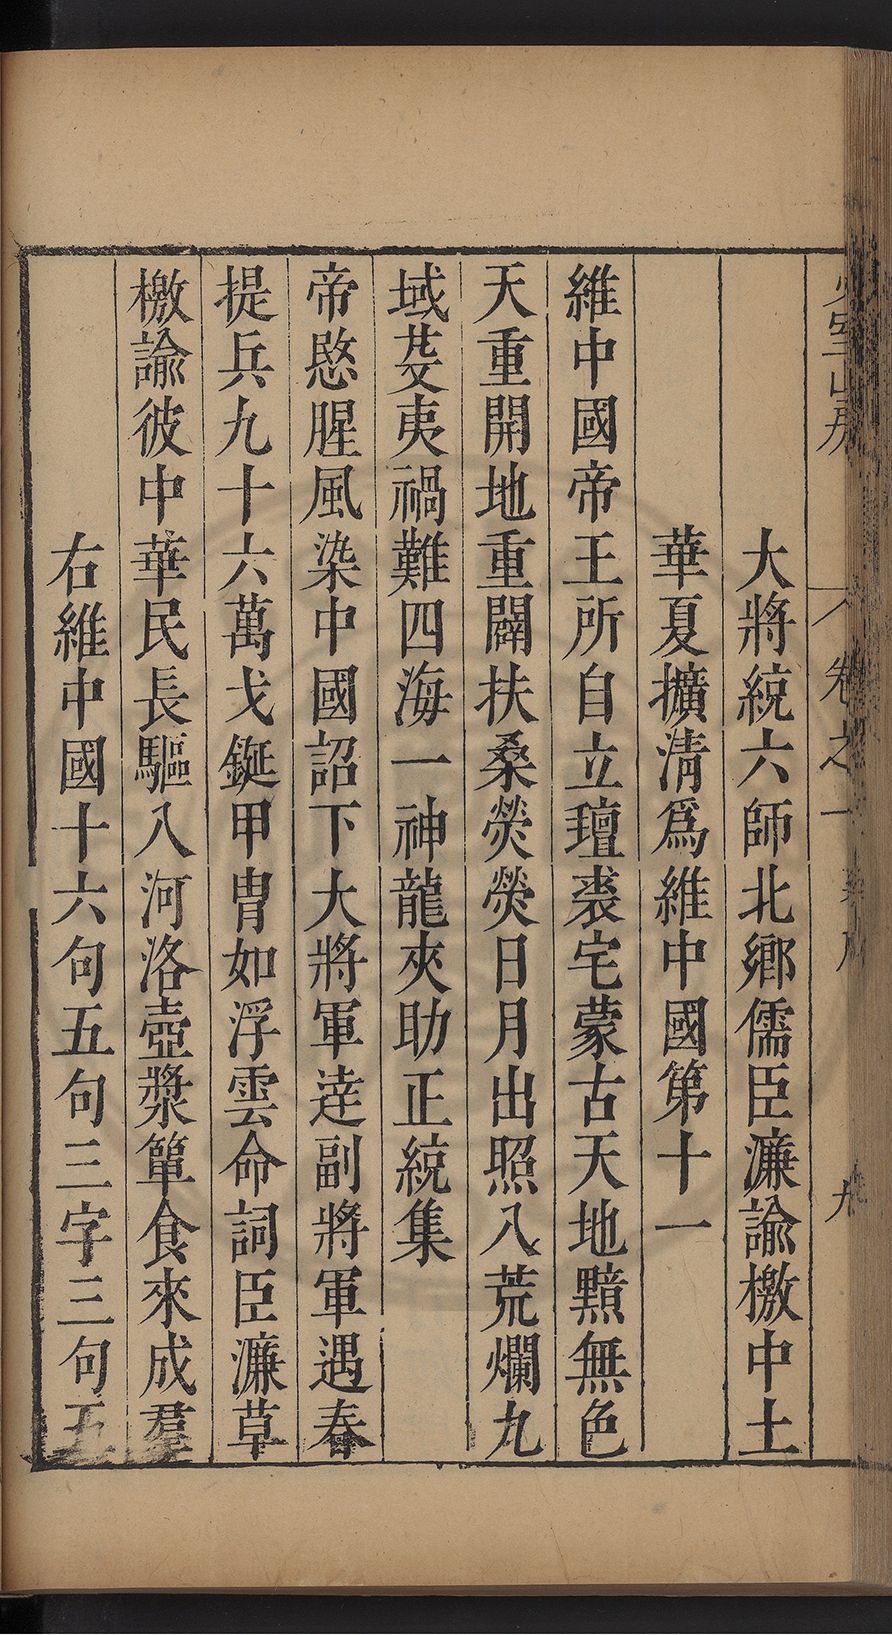 少室山房 卷之一 九
大將統六師北鄉儒臣濂諭檄中土
華夏擴清爲維中國第十一
維中國帝王所自立氊裘宅蒙古天地黯無色
天重開地重闢扶桑熒熒日月出照八荒爛九
域芟夷禍難四海一神龍夾助正統集
帝愍腥風染中國詔下大將軍逹副將軍遇春
提兵九十六萬戈鋋甲冑如浮雲命詞臣濂草
檄諭彼中華民長驅入河洛壺漿簞食來成羣
右維中國十六句五句三字三句五